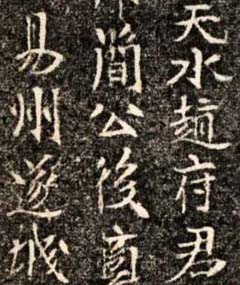 天水趙府君
簡公後
易州遂城